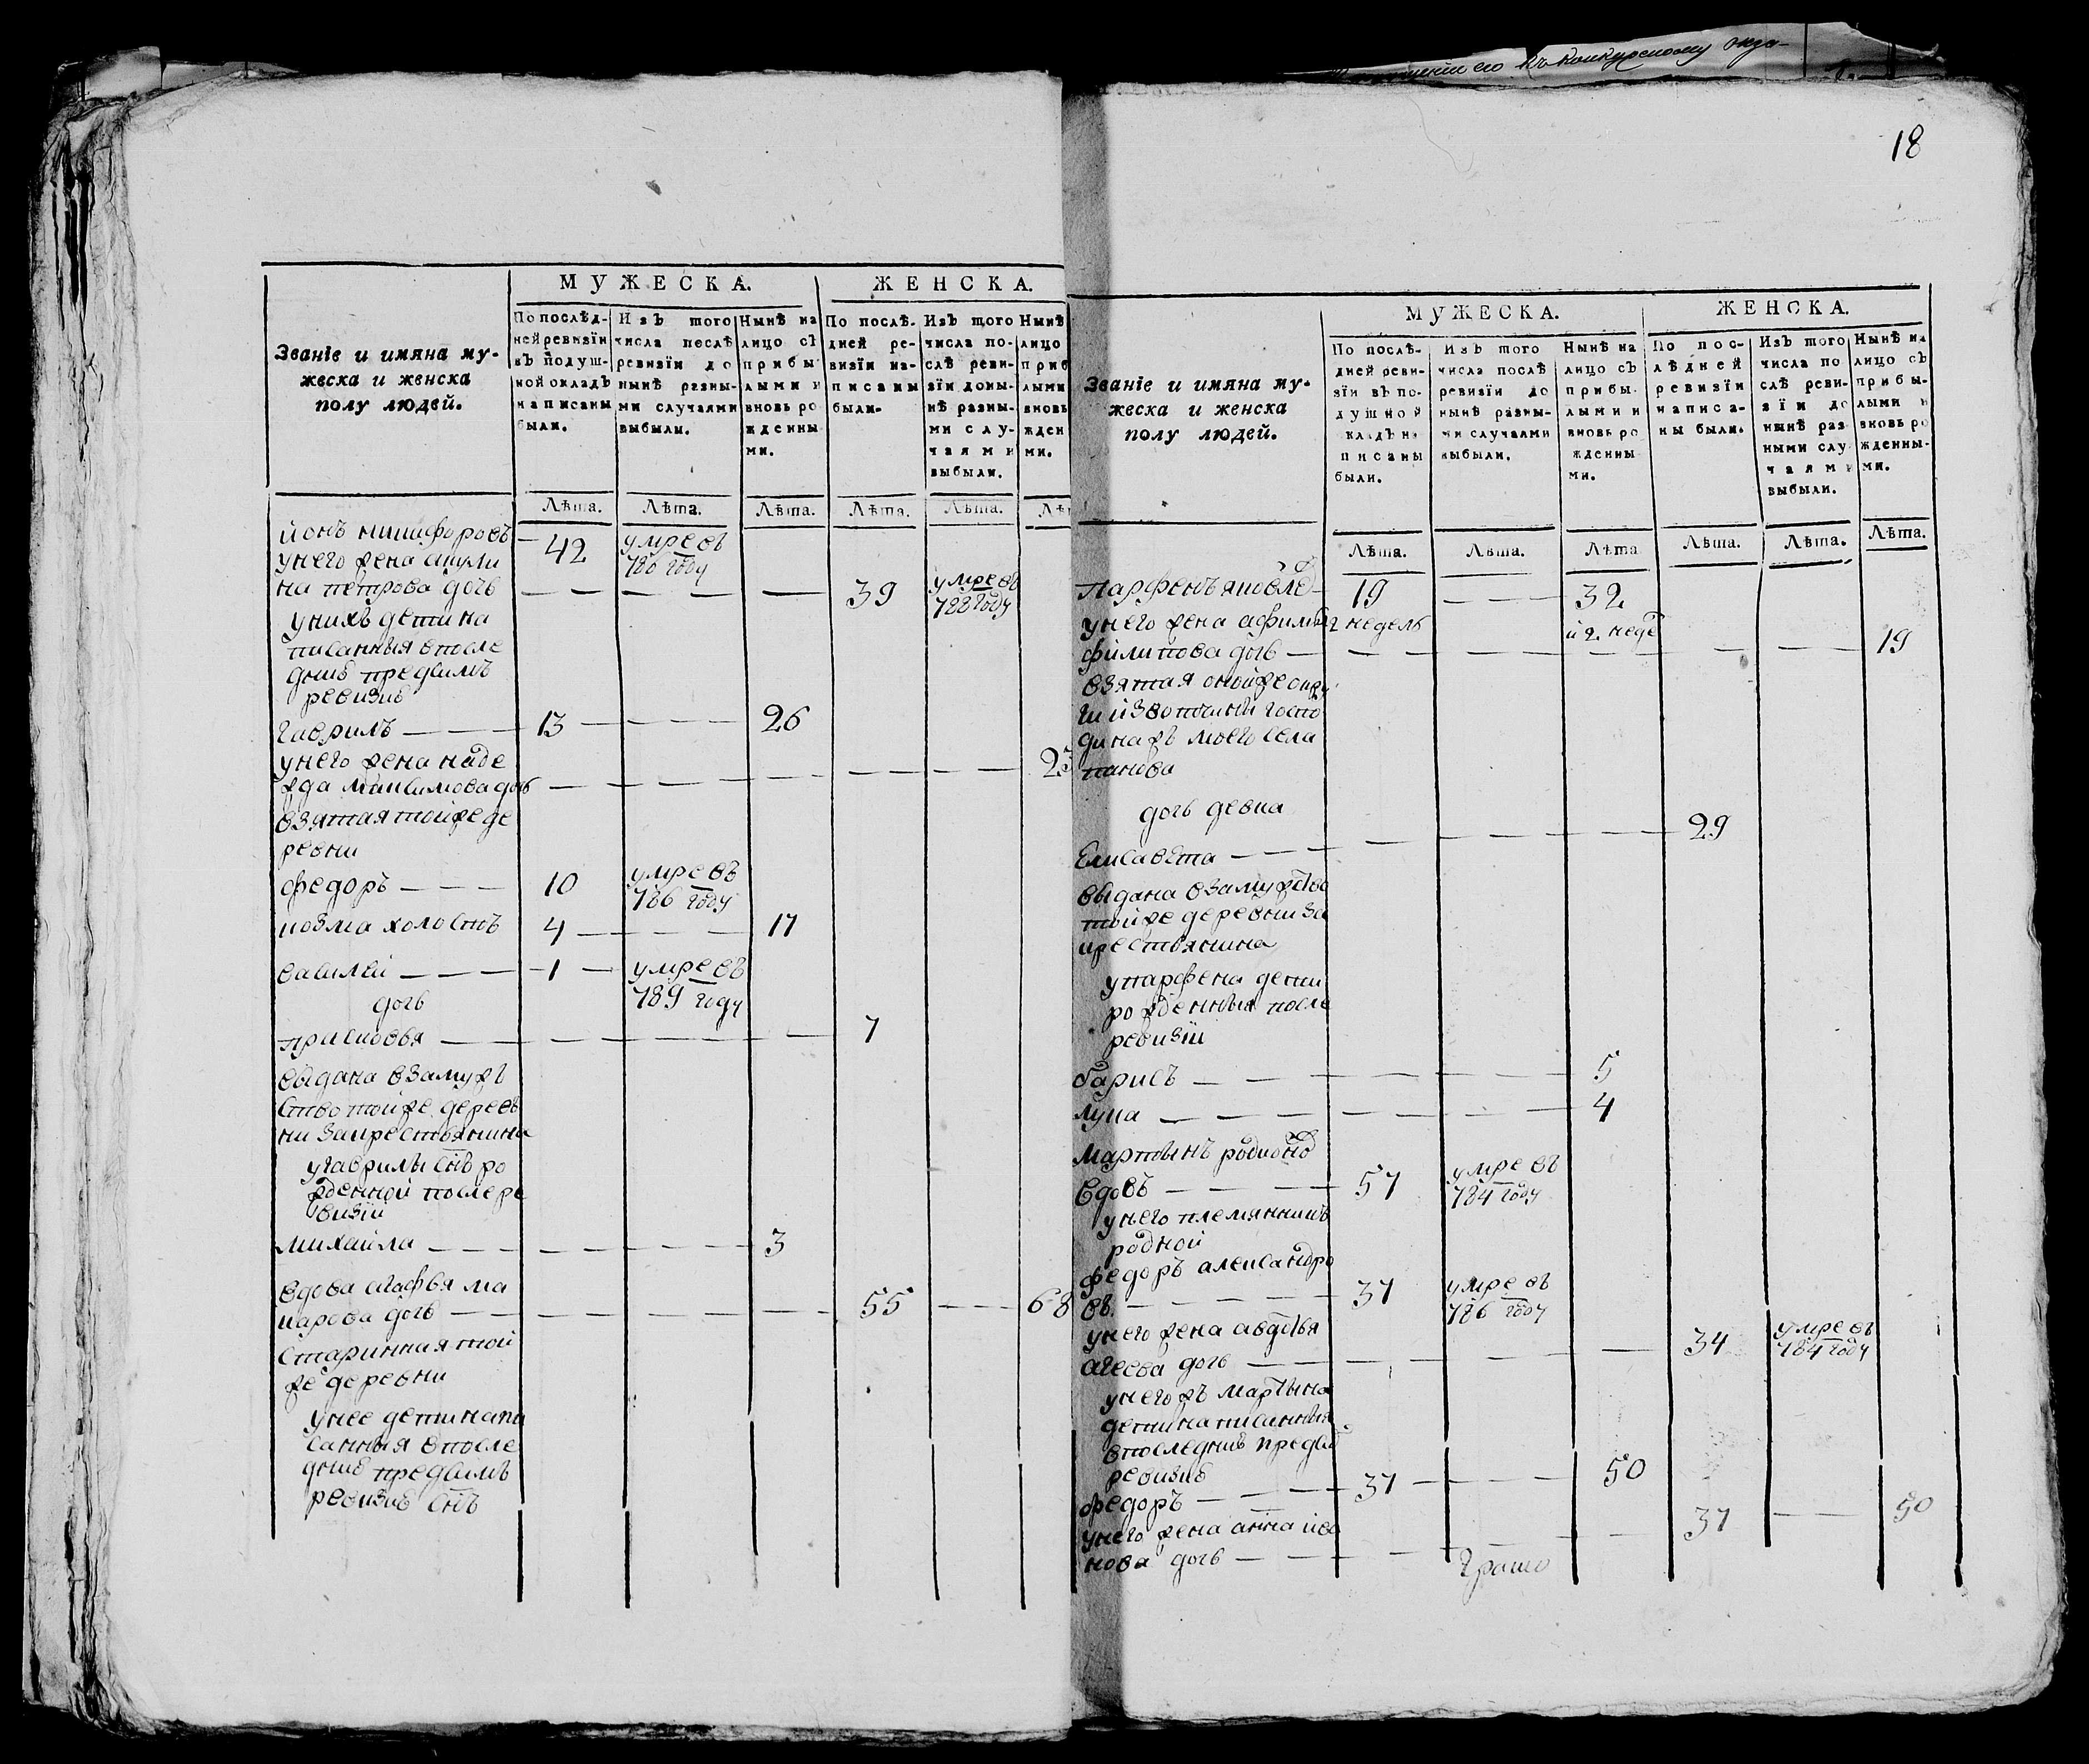 18
МУЖЕСКА.
ЖЕНСКА.
Званіе и имяна му-
жеска и женска
полу людей.
По послѣд-
ней ревизіи
въ подуш-
ной окладъ
написаны
были.
Изъ того
числа послѣ
ревизіи до
нынѣ разны-
ми случаями
выбыли.
Нынѣ на
лицо съ
прибы
лыми и
вновь ро
жденны
ми.
По послѣ-
дней ре-
визіи на-
писаны
были.
Изъ того
числа по-
слѣ реви-
зіи доны-
нѣ разны-
ми слу-
чаями
выбыли.
Нынѣ
лицо
приб
лыми
вновь
жден
ми.
Лѣта.
Лѣта.
Лѣта.
Лѣта.
Лѣта.
Лѣ
йонъ никифоровъ 42 умре въ
780 году
унего жена акули
на петрова дочь 39 умре въ
788 году
унихъ дети на
писанныя впосле
днѣ предъимъ
ревизиѣ
гаврилъ 13 26
унего жена наде
жда максимова дочь 23
взятая тойже де
ревни
федоръ 10 умре въ
786 году
козма холостъ 4 17
василей 1 умре въ
789 году
дочь
прасковья 7
выдана взамужъ
ство тойже дерев
ни закрестьянина
угаврилы снъ ро
жденной после ре
визіи
михайла 3
вдова агафья ма
карова дочь 55 68
старинная той
же деревни
унее дети напи
санныя впосле
днѣ предъимъ
ревизиѣ снъ
МУЖЕСКА.
ЖЕНСКА.
Званіе и имяна му-
жеска и женска
полу людей.
По послѣ-
дней реви-
зіи въ по-
душной
кладъ н
писаны
были.
Изъ того
числа послѣ
ревизіи до
нынѣ разны-
ми случаями
выбыли.
Нынѣ на
лицо съ
прибы-
лыми и
вновь ро
жденны
ми.
По пос-
лѣдней
ревизіи
написа-
ны были.
Изъ того
числа по
слѣ реви-
зіи до
нынѣ раз
ными слу
чаями
выбыли.
Нынѣ на
лицо съ
прибы-
лыми и
вновь ро
жденны-
ми.
Лѣта.
Лѣта.
Лѣта
Лѣта.
Лѣта.
Лѣта.
парфенъ яковле 19 32
2 недель и 2 неде
унего жена афимья
филипова дочь 19
взятая
динажъ моего села
панова
дочь девка
Елисавета 29
выдана взамужство
тойже деревни за
крестьянина
упарфена дети
рожденныя после
ревизіи
барисъ 5
лука 4
мартынъ родионо
вдовъ 57 умре въ
784 году
унего племянникъ
родной
федоръ александро
въ. 37 умре въ
786 году
унего жена авдотья
агеева дочь 34 умре въ
784 году
унегожъ мартына
дети написанныя
впоследниѣ предъи
ревизиѣ
федоръ 37 50
унего жена анна ива
нова дочь 37 50